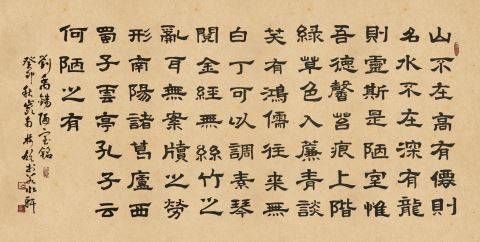 山不在高有僊則
名水不在深有龍
則靈斯是陋室惟
吾德馨苔痕上階
綠草色入簾青談
笑有鴻儒往來無
白丁可以調素琴
閱金經無絲竹之
亂耳無案牘之勞
形南陽諸葛廬西
蜀子雲亭孔子云
何陋之有
劉禹錫陋室銘
癸卯秋